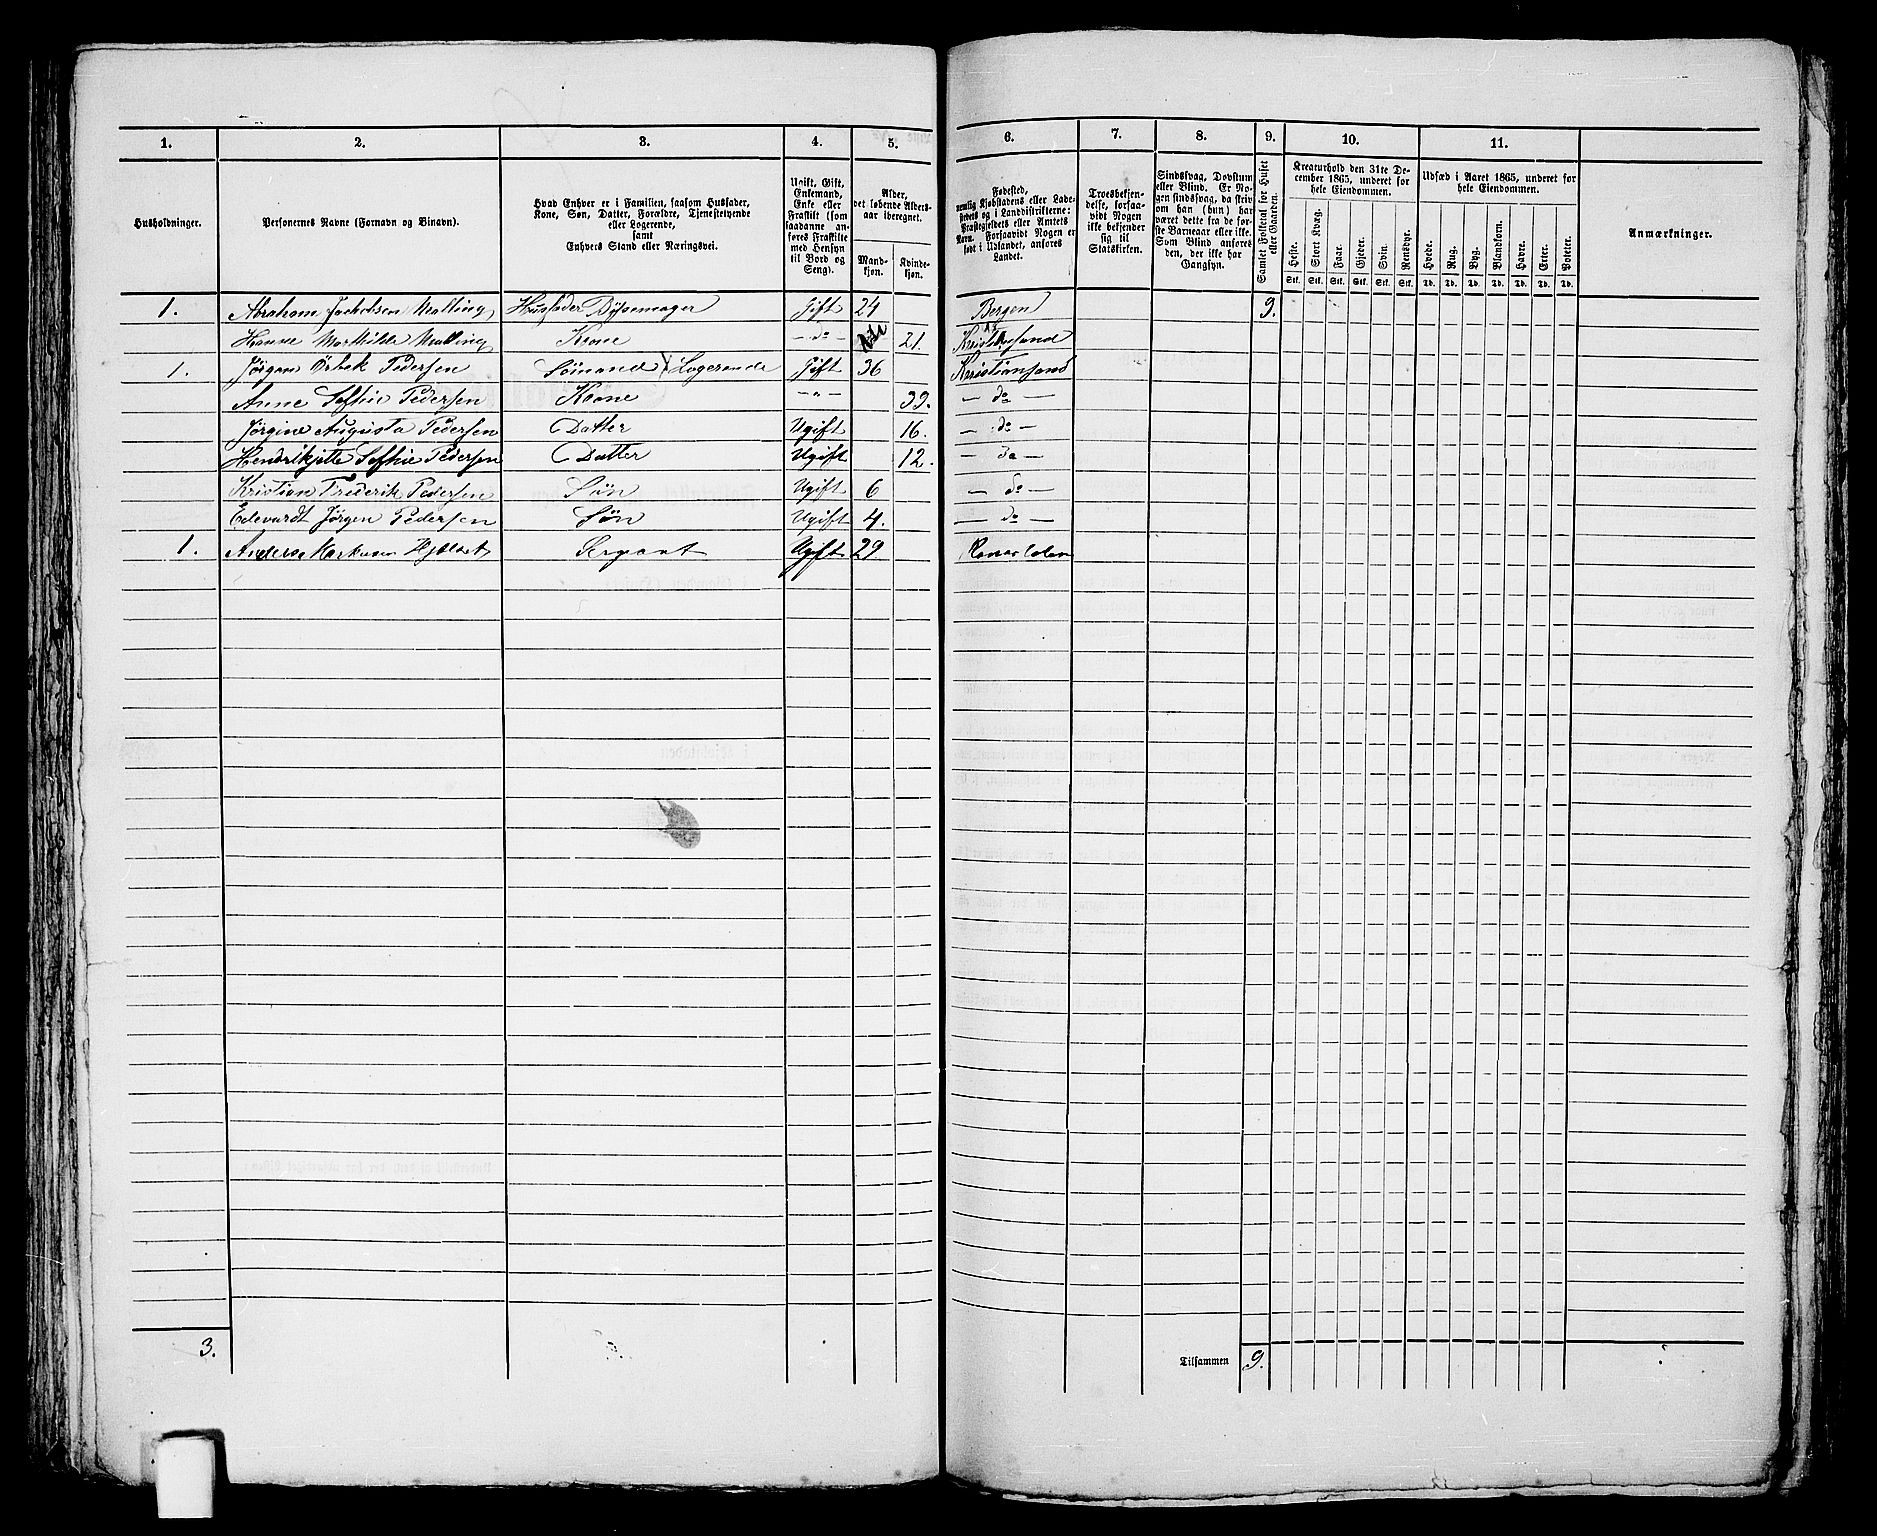 1. 2. 3. 4. 5. 6. 7. 8. 9. 10. 11.
Husholdninger.
Personernes Navne (Fornavn og Binavn).
Hvad Enhver er i Familien, saasom Husfader,
Kone, Søn, Datter, Forældre, Tjenestetyende
eller Logerende,
samt
Enhvers Stand eller Næringsvei.
Ugift, Gift,
Enkemand,
Enke eller
Fraskilt (som
saadanne an-
føres Fraskilte
med Hensyn
til Bord og
Seng).
Alder,
det løbende Alders-
aar iberegnet.
Mand-
kjøn.
Kvinde-
kjøn.
Fødested,
nemlig Kjøbstadens eller Lade-
stedets og i Landdistrikterne:
Præstegjeldets eller Amtets
Navn. Forsaavidt Nogen er
født i Udlandet, anføres
Landet.
Troesbekjen-
delse, forsaa-
vidt Nogen
ikke bekjender
sig til
Statskirken.
Sindssvag, Døvstum
eller Blind. Er No-
gen sindssvag, da skriv
om han (hun) har
været dette fra de før-
ste Barneaar eller ikke.
Som Blind anføres
den, der ikke har
Gangsyn.
Samlet Folketal for Huset
eller Gaarden.
Kreaturhold den 31te De-
cember 1865, underet for
hele Eiendommen.
Heste. Stort Kvæg. Faar. Gjeder. Svin. Rensdyr.
Stk. Stk. Stk. Stk. Stk. Stk.
Udsæd i Aaret 1865, underet for
hele Eiendommen.
Hvede. Rug. Byg. Blandkorn. Havre. Erter. Poteter.
Td. Td. Td. Td. Td. Td. Td.
Anmærkninger.
1. Abraham Jacobsen Malling Husfader Bøssemager Gift 24 Bergen 9.
Hanne Mathilde Malling Kone - do - 21. Kristianssand
1. Jørgen Ørbek Pedersen Sömand Logerende Gift 36 Kristianssand
Anne Sofhie Pedersen Kone - " - 39. - do -
Jørgine Augusta Pedersen Datter Ugift 16. - do -
Hendrikjette Sofhie Pedersen Datter Ugift 12. - do -
Kristian Frederik Pedersen Søn Ugift 6 - do -
Edevardt Jørgen Pedersen Søn Ugift 4. - do -
1. Anders Markusen Sergeant Ugift 29.
3. Tilsammen 9.